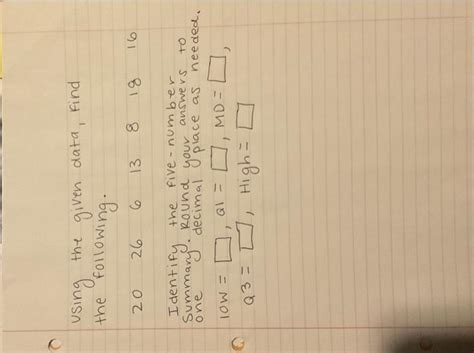 Using the given data, find
the following.
20 26 6 13 8 18 16
Identify the five-number
summary. Round your answers to
one decimal place as needed.
low = , Q1 = , MD = ,
Q3 = , High =